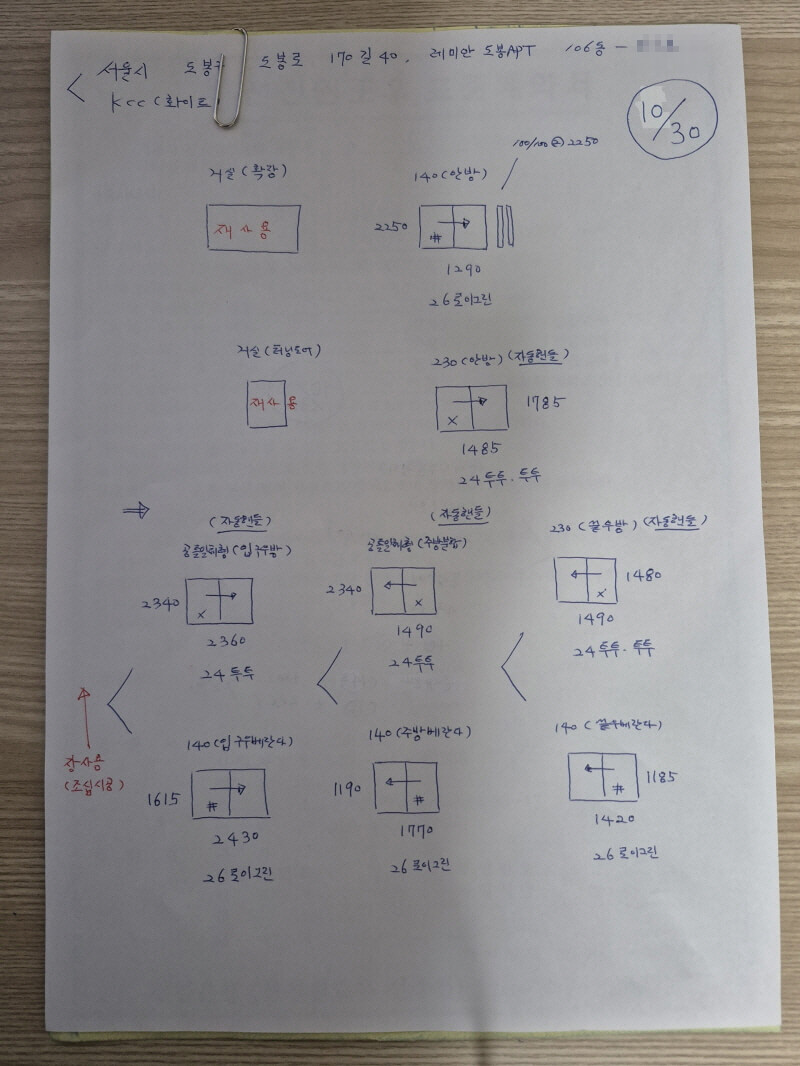 서울시 도봉구 도봉로 170길 40. 레미안 도봉APT 106동 -
KCC (화이트)
10/30
거실 (확장)
재사용
140 (안방)
100/100 2250
2250
#
1290
26 로이그린
거실 (터닝도어)
재사용
230 (안방) (자동핸들)
X
1785
1485
24 투투. 투투
⇒
(자동핸들)
공틀일체형 (입구우방)
2340
X
2360
24 투투
(자동핸들)
공틀일체형 (주방분합)
2340
X
1490
24 투투
230 (끝우방) (자동핸들)
X
1480
1490
24 투투. 투투
장사용
(조심시공)
140 (입구우베란다)
1615
#
2430
26 로이그린
140 (주방베란다)
1190
#
1770
26 로이그린
140 (끝우베란다)
#
1185
1420
26 로이그린